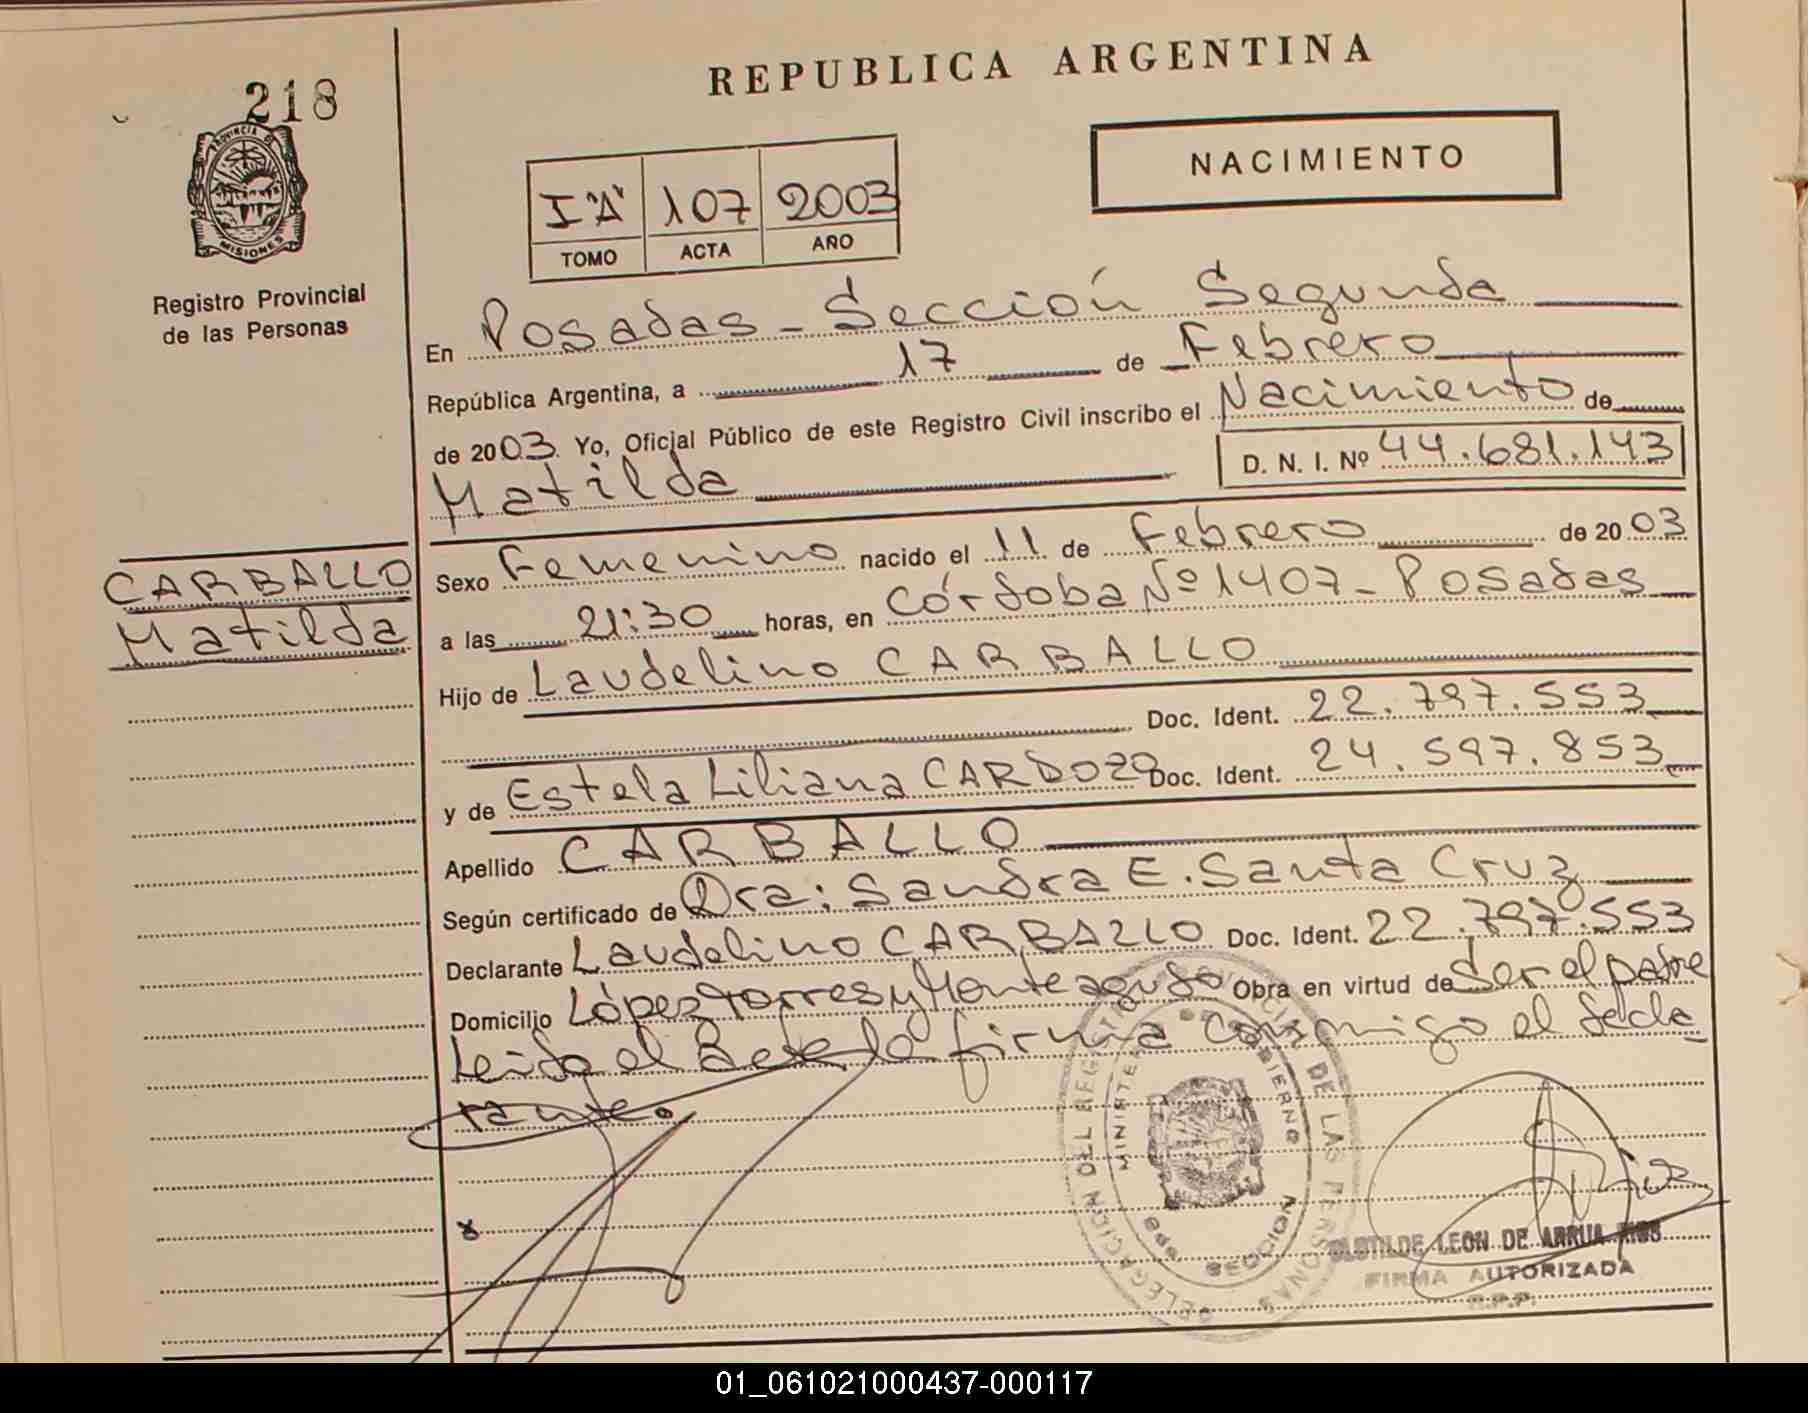 218
REPUBLICA ARGENTINA
NACIMIENTO
PROVINCIA DE
MISIONES
I "A" 107 2003
TOMO ACTA AÑO
Registro Provincial
de las Personas
En Posadas - Sección Segunda
República Argentina, a 17 de Febrero
de 2003 Yo, Oficial Público de este Registro Civil inscribo el Nacimiento de
Matilda D. N. I. Nº 44.681.143
CARBALLO
Matilda
Sexo Femenino nacido el 11 de Febrero de 2003
a las 21:30 horas, en Córdoba Nº 1407 - Posadas
Hijo de Laudelino CARBALLO
Doc. Ident. 22.797.553
y de Estela Liliana CARDOZO Doc. Ident. 24.597.853
Apellido CARBALLO
Según certificado de Dra: Sandra E. Santa Cruz
Declarante Laudelino CARBALLO Doc. Ident. 22.797.553
Domicilio López Torres y Monteagudo Obra en virtud de ser el padre
Leida el Acta la firma conmigo el decla
rante.
x
DELEGACION DEL REGISTRO PROVINCIAL DE LAS PERSONAS
MINISTERIO DE GOBIERNO
SECCION 2da
CLOTILDE LEON DE ARRUA RIOS
FIRMA AUTORIZADA
R.P.P.
01_061021000437-000117